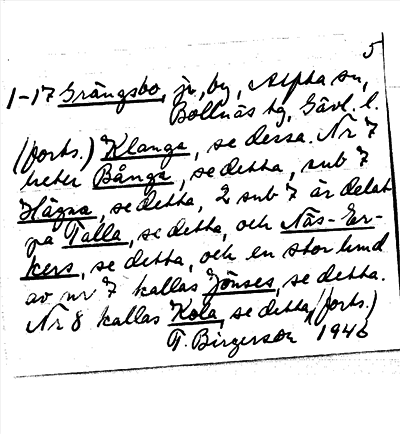 5
1-17 Grängsbo, jr, by, Alfta sn,
Bollnäs tg, Gävl. l.
(forts.) Klanga, se dessa. Nr 7
heter Bånga, se detta, sub 7
Hägna, se detta, 2 sub 7 är delat
på Talla, se detta, och Näs-Er-
kers, se detta, och en stor lund
av nr 7 kallas Jönses, se detta.
Nr 8 kallas Kola, se detta, (forts.)
T. Birgerson 1946